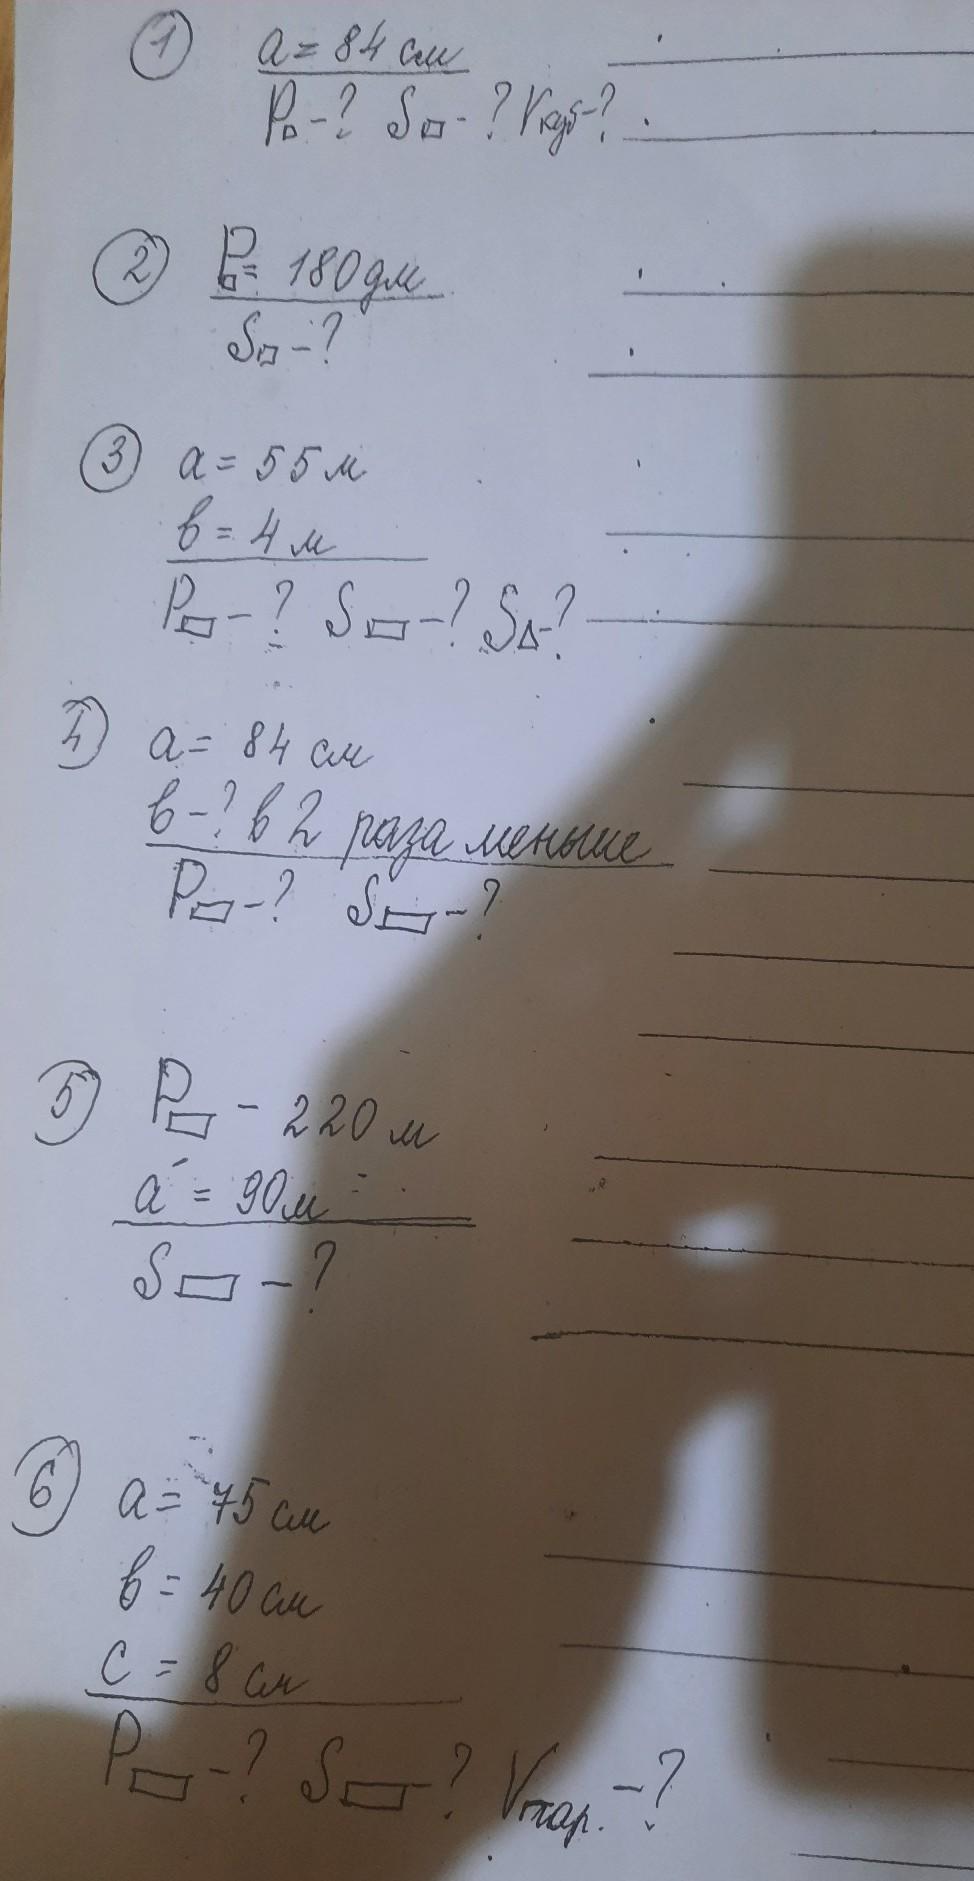 ① a = 84 см
P□-? S□-? Vкуб-?
② P□= 180 дм
S□-?
③ a = 55 м
в = 4 м
P▭-? S▭-? S△-?
4) a = 84 см
в-? в 2 раза меньше
P▭-? S▭-?
5) P▭ - 220 м
a = 90 м
S▭ - ?
6) a = 75 см
в = 40 см
c = 8 см
P▭-? S▭-? Vпар. -?